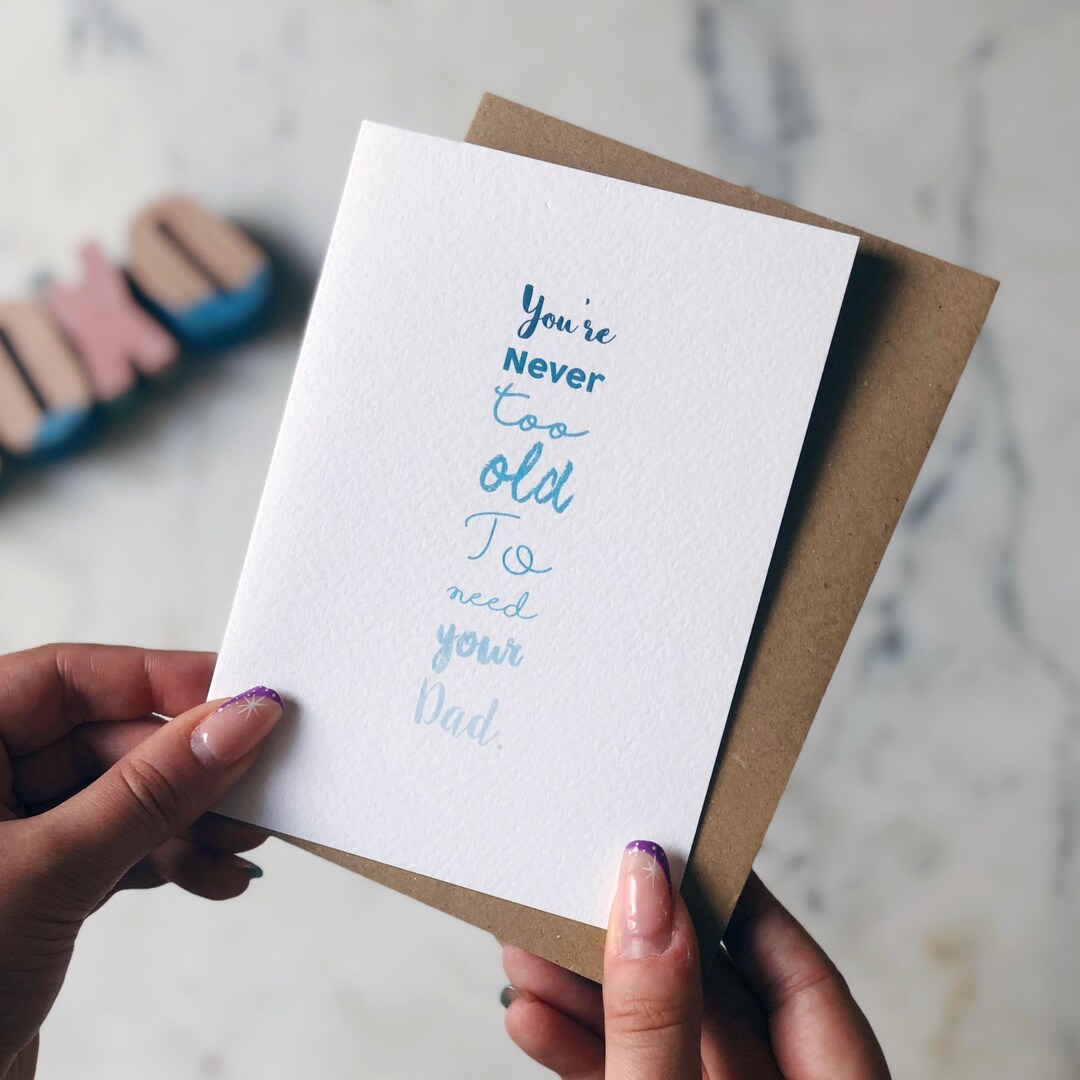 You're
Never
too
old
To
need
your
Dad.